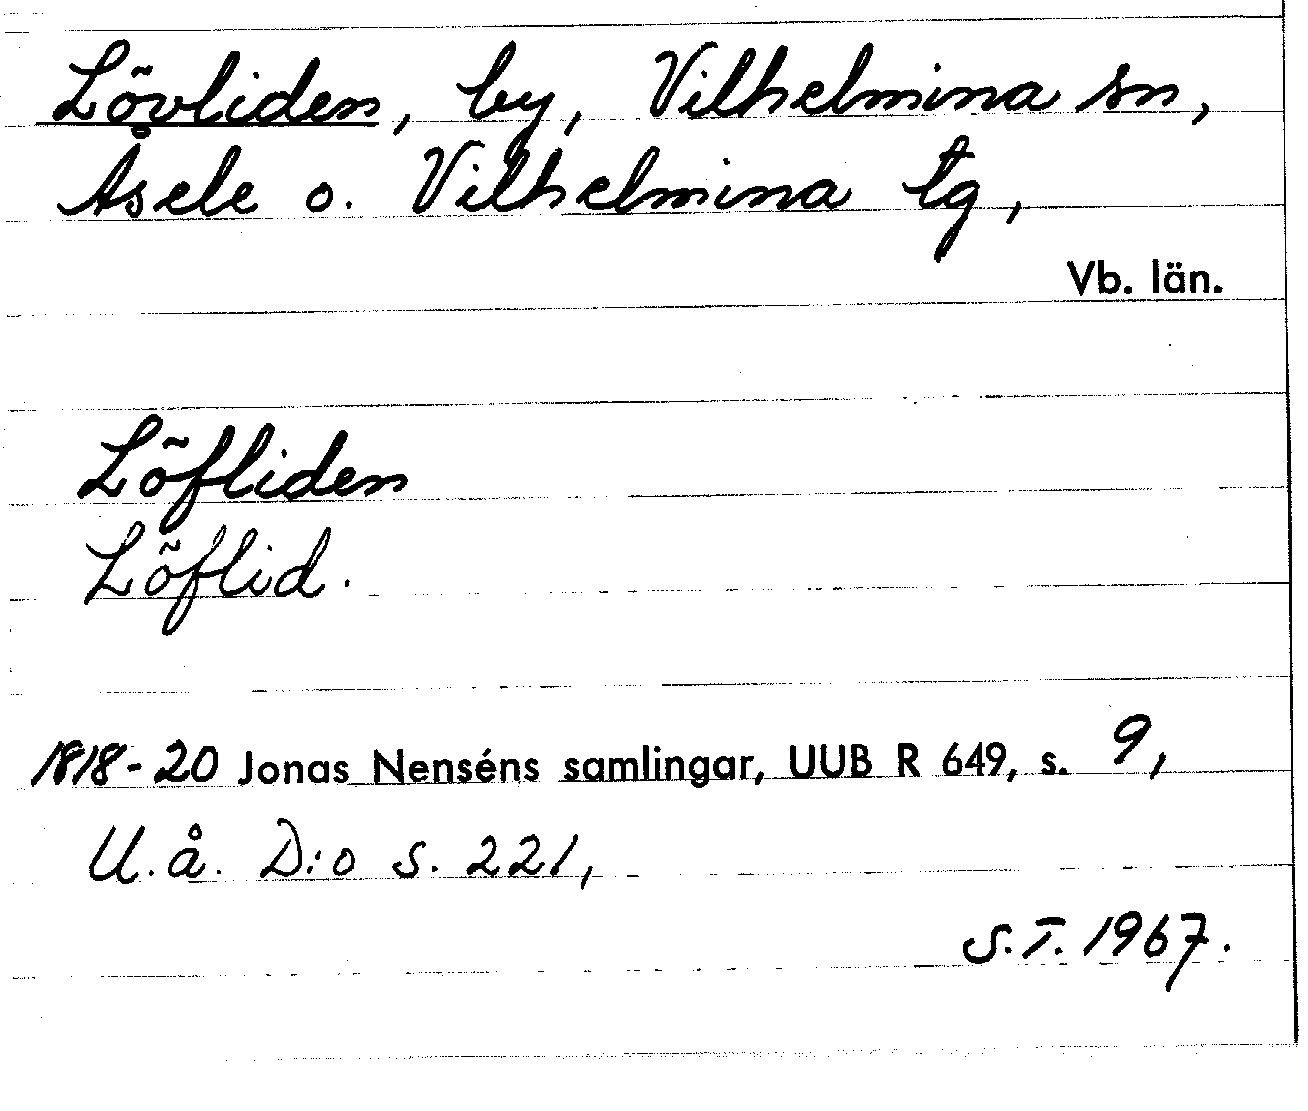 Lövliden, by, Vilhelmina sn,
Åsele o. Vilhelmina tg,
Vb. län.
Löfliden
Löflid.
1818-20 Jonas Nenséns samlingar, UUB R 649, s. 9,
U.å. D:o s. 221,
S.T. 1967.